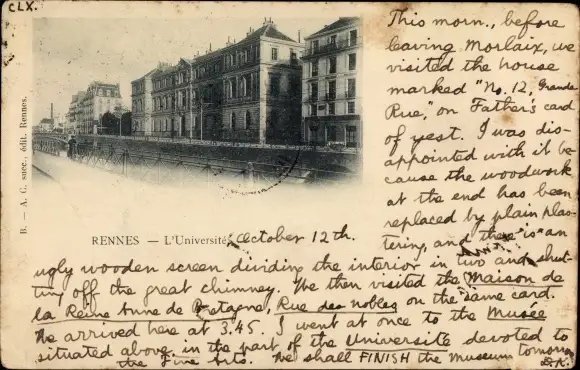 CLX.
B. — A. G. succ., édit. Rennes.
This morn., before
leaving Morlaix, we
visited the house
marked "No. 12, Grande
Rue," on Father's card
of yest. I was dis-
appointed with it be-
cause the woodwork
at the end has been
replaced by plain plas-
tering, and there "is" an
RENNES — L'Université, October 12th.
ugly wooden screen dividing the interior in two and shut-
ting off the great chimney. We then visited the Maison de
la Reine Anne de Bretagne, Rue des nobles on the same card.
We arrived here at 3.45. I went at once to the Musée
situated above, in the part of the Université devoted to
the Fine Arts. We shall FINISH the Museum tomorrow